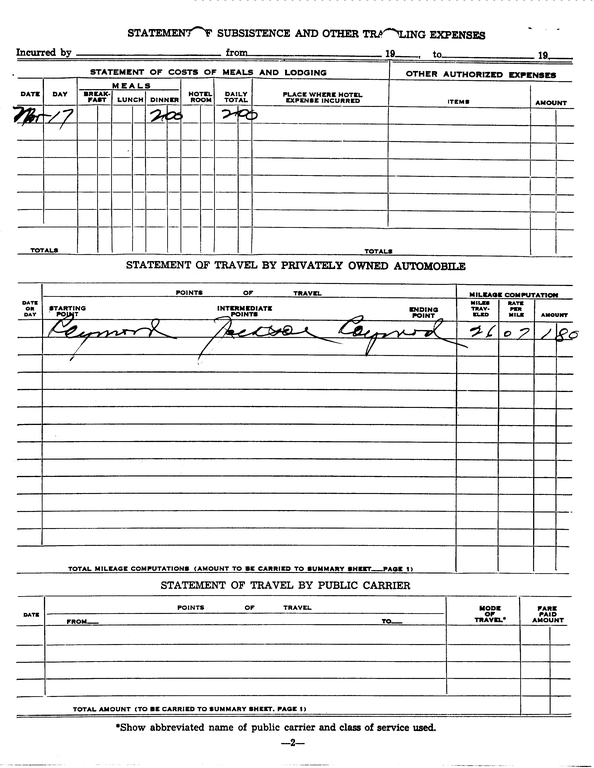 STATEMENT OF SUBSISTENCE AND OTHER TRAVELING EXPENSES
Incurred by from 19 , to 19
STATEMENT OF COSTS OF MEALS AND LODGING OTHER AUTHORIZED EXPENSES
DATE DAY MEALS HOTEL ROOM DAILY TOTAL PLACE WHERE HOTEL EXPENSE INCURRED ITEMS AMOUNT
BREAK-FAST LUNCH DINNER
17 2 00 2 00
TOTALS TOTALS
STATEMENT OF TRAVEL BY PRIVATELY OWNED AUTOMOBILE
DATE OR DAY POINTS OF TRAVEL MILEAGE COMPUTATION
STARTING POINT INTERMEDIATE POINTS ENDING POINT MILES TRAV-ELED RATE PER MILE AMOUNT
Raymond Jackson Raymond 26 07 1 80
TOTAL MILEAGE COMPUTATIONS (AMOUNT TO BE CARRIED TO SUMMARY SHEET—PAGE 1)
STATEMENT OF TRAVEL BY PUBLIC CARRIER
DATE POINTS OF TRAVEL MODE OF TRAVEL* FARE PAID AMOUNT
FROM— TO—
TOTAL AMOUNT (TO BE CARRIED TO SUMMARY SHEET, PAGE 1)
*Show abbreviated name of public carrier and class of service used.
—2—